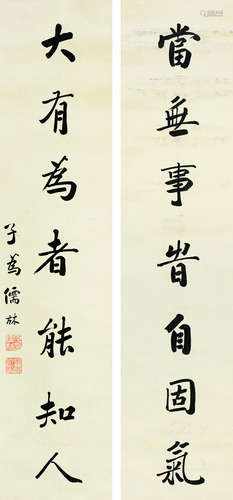 當無事時自固氣
大有為者能知人
子為儒林